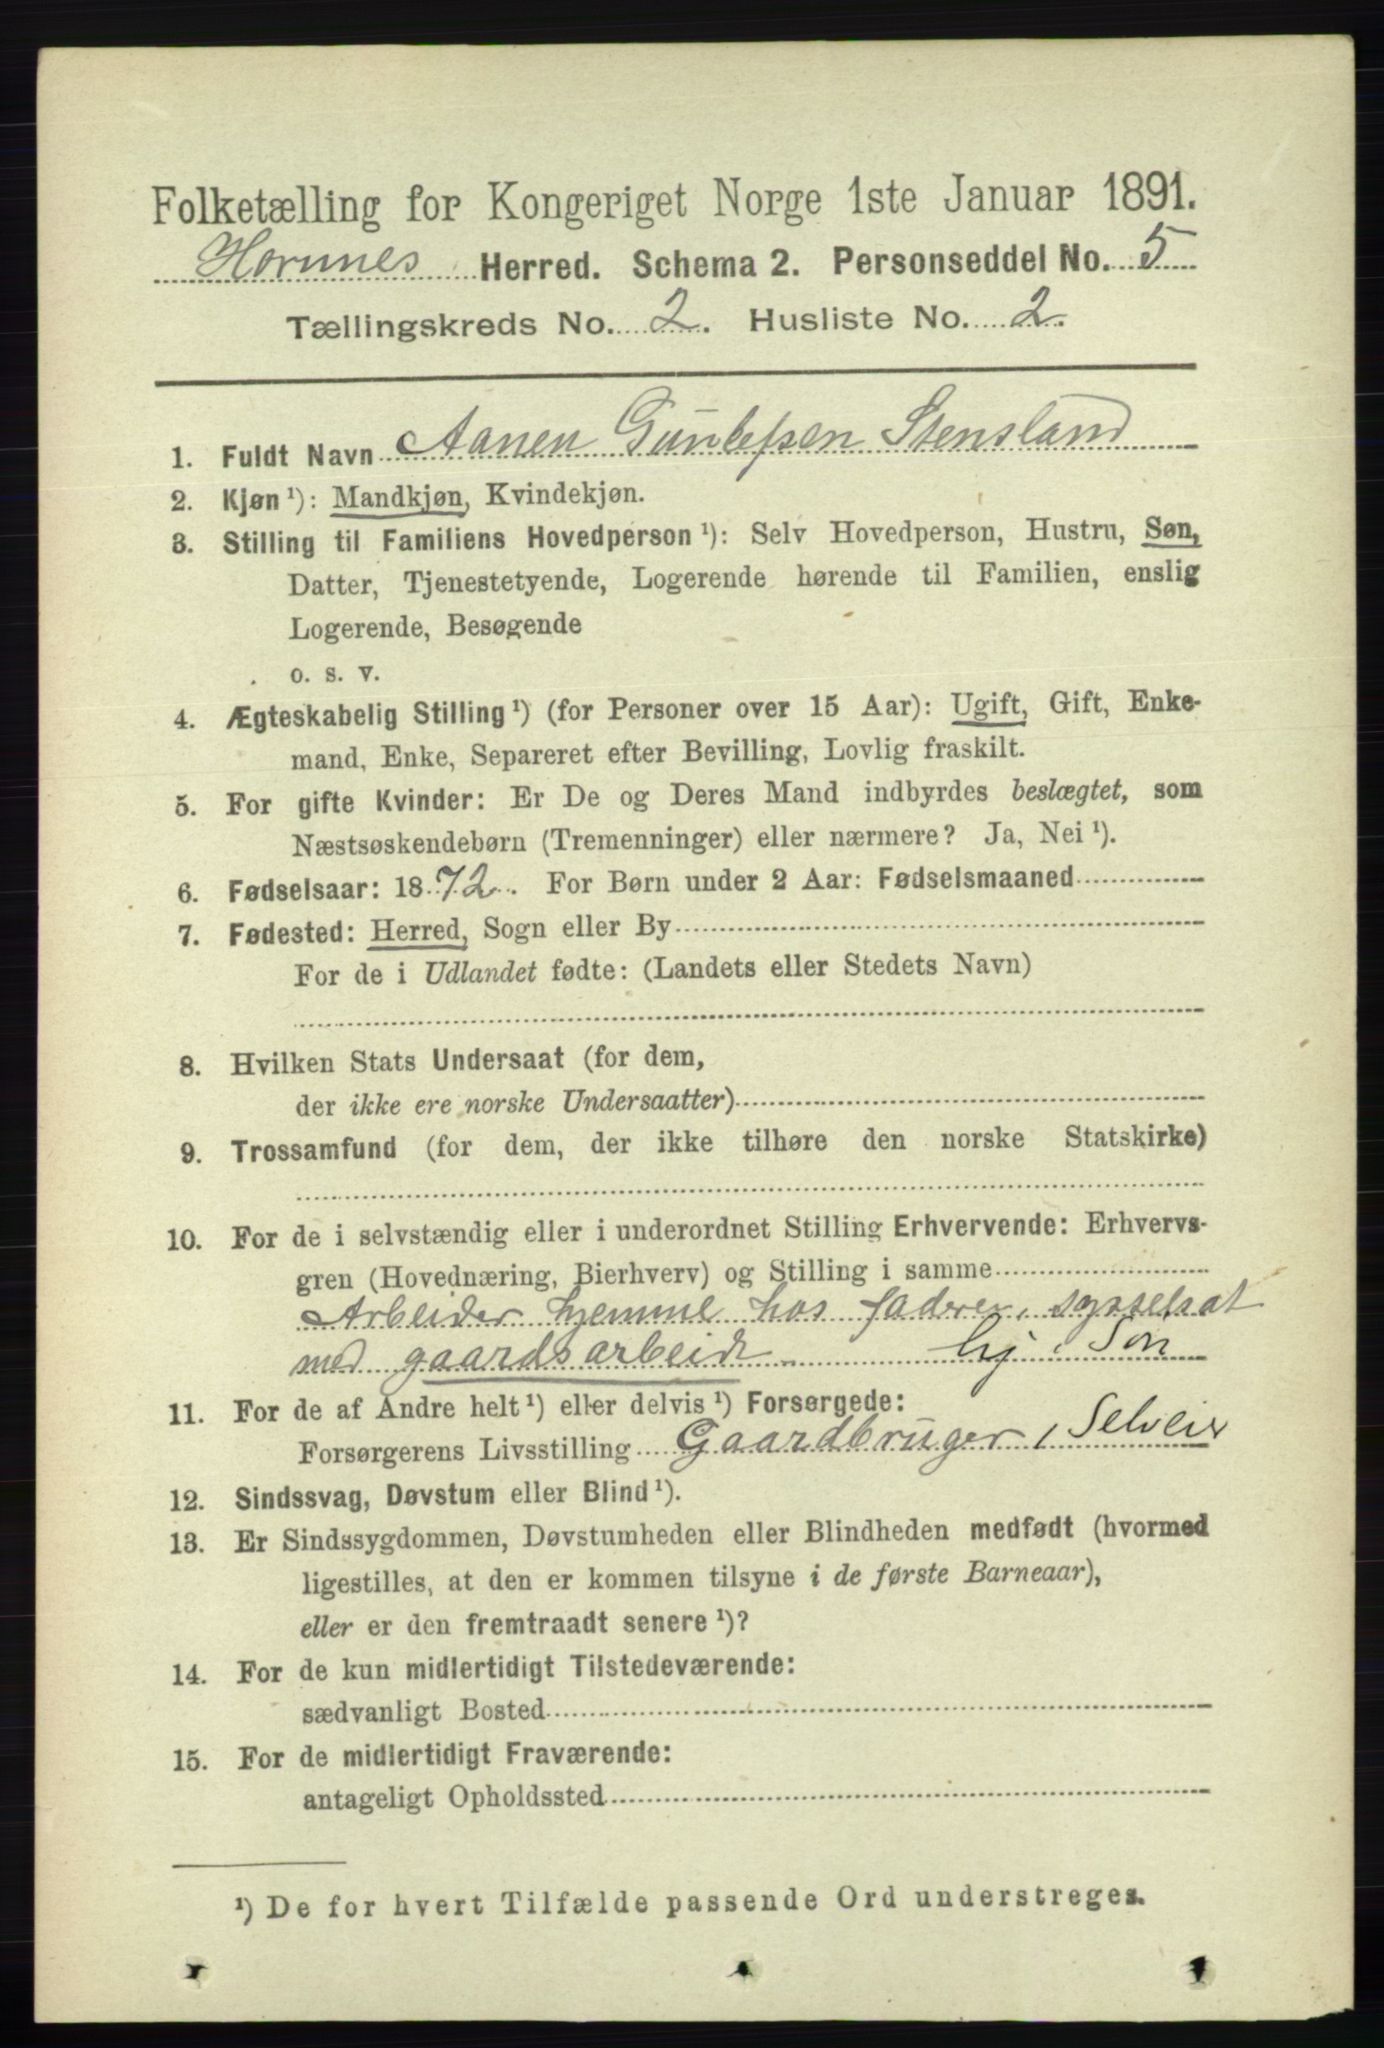 Folketælling for Kongeriget Norge 1ste Januar 1891.
Hornnes Herred. Schema 2. Personseddel No. 5
Tællingskreds No. 2. Husliste No. 2.
1. Fuldt Navn Aanen Gunlefsen Stensland
2. Kjøn ¹): Mandkjøn, Kvindekjøn.
3. Stilling til Familiens Hovedperson ¹): Selv Hovedperson, Hustru, Søn,
Datter, Tjenestetyende, Logerende hørende til Familien, enslig
Logerende, Besøgende
o. s. v.
4. Ægteskabelig Stilling ¹) (for Personer over 15 Aar): Ugift, Gift, Enke-
mand, Enke, Separeret efter Bevilling, Lovlig fraskilt.
5. For gifte Kvinder: Er De og Deres Mand indbyrdes beslægtet, som
Næstsøskendebørn (Tremenninger) eller nærmere? Ja, Nei ¹).
6. Fødselsaar: 1872. For Børn under 2 Aar: Fødselsmaaned
7. Fødested: Herred, Sogn eller By
For de i Udlandet fødte: (Landets eller Stedets Navn)
8. Hvilken Stats Undersaat (for dem,
der ikke ere norske Undersaatter)
9. Trossamfund (for dem, der ikke tilhøre den norske Statskirke)
10. For de i selvstændig eller i underordnet Stilling Erhvervende: Erhvervs-
gren (Hovednæring, Bierhverv) og Stilling i samme
Arbeider hjemme hos faderen, sysselsat
med gaardsarbeide hj. Søn
11. For de af Andre helt ¹) eller delvis ¹) Forsørgede:
Forsørgerens Livsstilling Gaardbruger, Selveier
12. Sindssvag, Døvstum eller Blind ¹).
13. Er Sindssygdommen, Døvstumheden eller Blindheden medfødt (hvormed
ligestilles, at den er kommen tilsyne i de første Barneaar),
eller er den fremtraadt senere ¹)?
14. For de kun midlertidigt Tilstedeværende:
sædvanligt Bosted
15. For de midlertidigt Fraværende:
antageligt Opholdssted
¹) De for hvert Tilfælde passende Ord understreges.